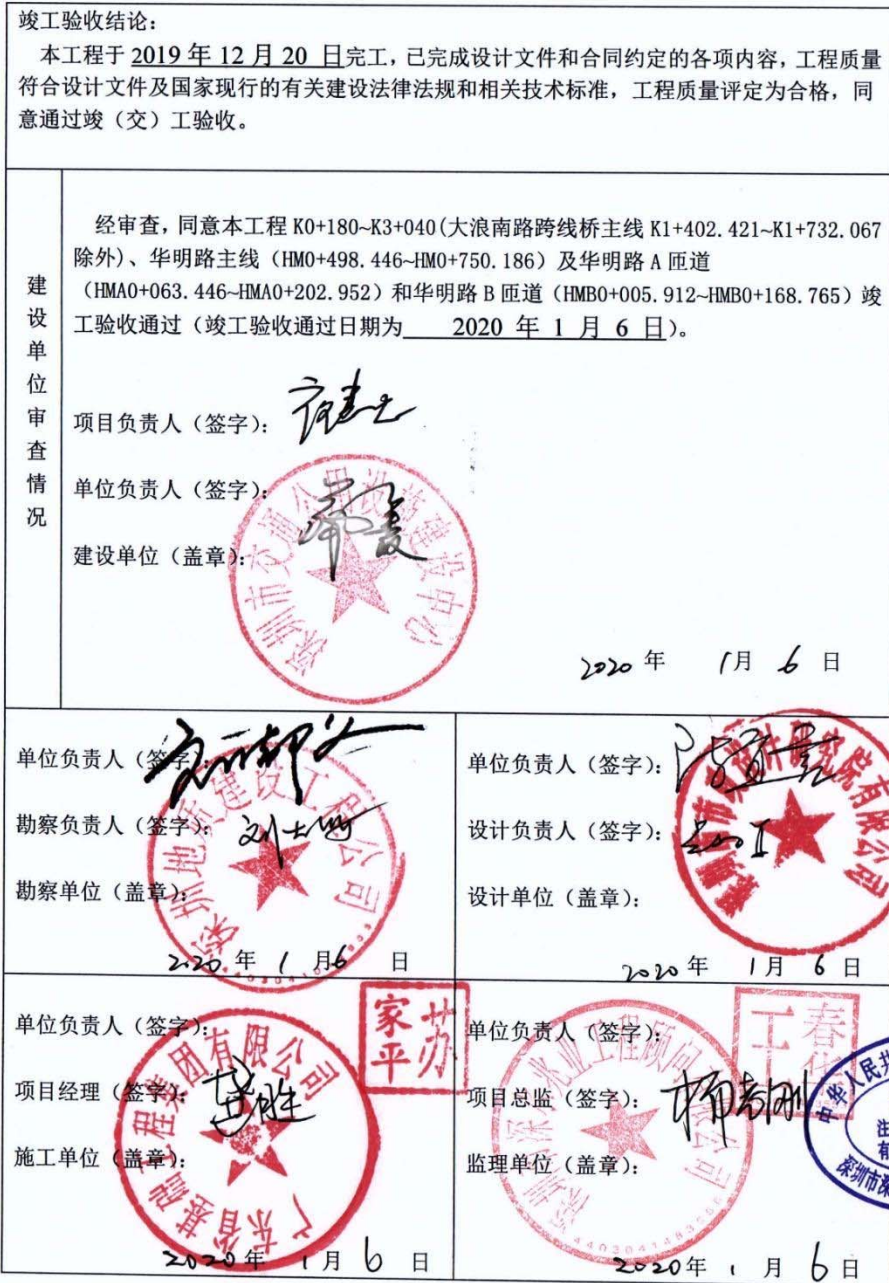 竣工验收结论:
本工程于 2019 年 12 月 20 日完工，已完成设计文件和合同约定的各项内容，工程质量
符合设计文件及国家现行的有关建设法律法规和相关技术标准，工程质量评定为合格，同
意通过竣（交）工验收。
建设单位审查情况
经审查，同意本工程 K0+180~K3+040(大浪南路跨线桥主线 K1+402.421~K1+732.067
除外)、华明路主线（HM0+498.446~HM0+750.186）及华明路 A 匝道
（HMA0+063.446~HMA0+202.952）和华明路 B 匝道（HMB0+005.912~HMB0+168.765）竣
工验收通过（竣工验收通过日期为 2020 年 1 月 6 日）。
项目负责人（签字）：
单位负责人（签字）：
建设单位（盖章）：
深圳市交通公用设施建设中心
2020 年 1月 6 日
单位负责人（签字）：
勘察负责人（签字）：
勘察单位（盖章）：
深圳地质建设工程公司
2020 年 1 月6 日
单位负责人（签字）：
设计负责人（签字）：
设计单位（盖章）：
2020 年 1月 6 日
单位负责人（签字）：
苏家平
项目经理（签字）：
施工单位（盖章）：
广东省基础工程集团有限公司
2020年 1月 6 日
单位负责人（签字）：
项目总监（签字）：
监理单位（盖章）：
中华人民共
深圳市深
2020年 1 月 6 日